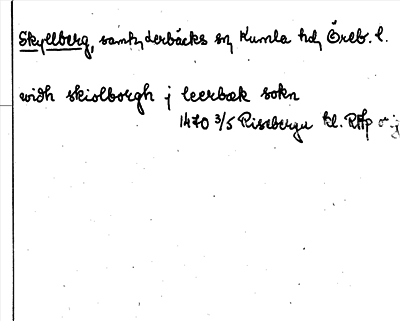 Skyllberg, samt Lerbäcks sn Kumla hd, Öreb. l.
widh skiolborgh j leerbæk sokn
1470 3/5 Riseberga kl. RAp